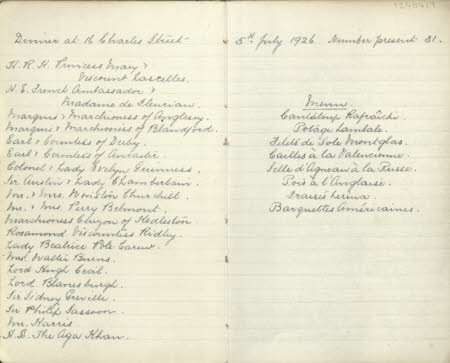 Dinner at 16 Charles Street
H. R. H. Princess Mary &
Viscount Lascelles.
H. E. French Ambassador &
Madame de Fleuriau.
Marquis & Marchioness of Anglesey.
Marquis & Marchioness of Blandford.
Earl & Countess of Derby.
Earl & Countess of Ancaster.
Colonel & Lady Evelyn Guinness.
Sir Austin & Lady Chamberlain.
Mr. & Mrs. Winston Churchill.
Mr. & Mrs. Perry Belmont.
Marchioness Curzon of Kedleston
Rosamond Viscountess Ridley.
Lady Beatrice Pole Carew.
Mrs. Walter Burns.
Lord Hugh Cecil.
Lord Blanesburgh.
Sir Sidney Greville.
Sir Philip Sassoon.
Mr. Harris
H. H. The Aga Khan.
5th July 1926 Number present 31.
Menu
Cantaloup Rafraîchi
Potage Santale.
Filets de Sole Montglas.
Cailles à la Valencienne.
Selle d'Agneau à la Russe.
Pois à l'Anglaise.
Fraises Lerina.
Barquettes Américaines.